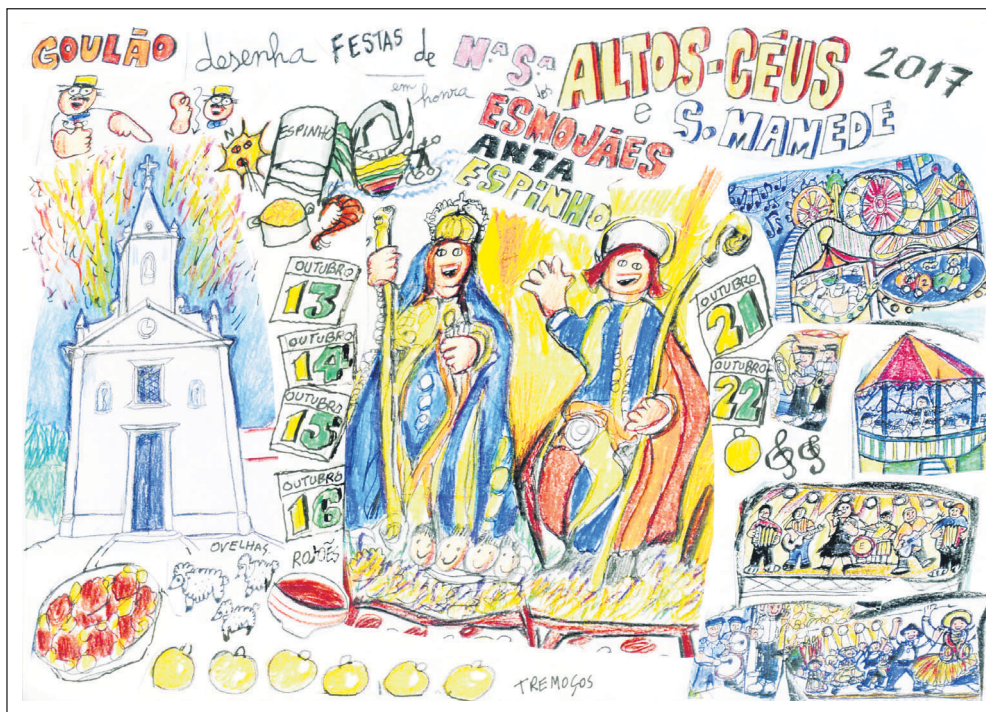 GOULÃO desenha FESTAS de Nª Sª dos ALTOS-CÉUS 2017
em honra
e S. MAMEDE
ESMOJÃES
ANTA
ESPINHO
N
ESPINHO
OUTUBRO
13
OUTUBRO
14
OUTUBRO
15
OUTUBRO
16
OUTUBRO
21
OUTUBRO
22
OVELHAS
ROJÕES
TREMOÇOS